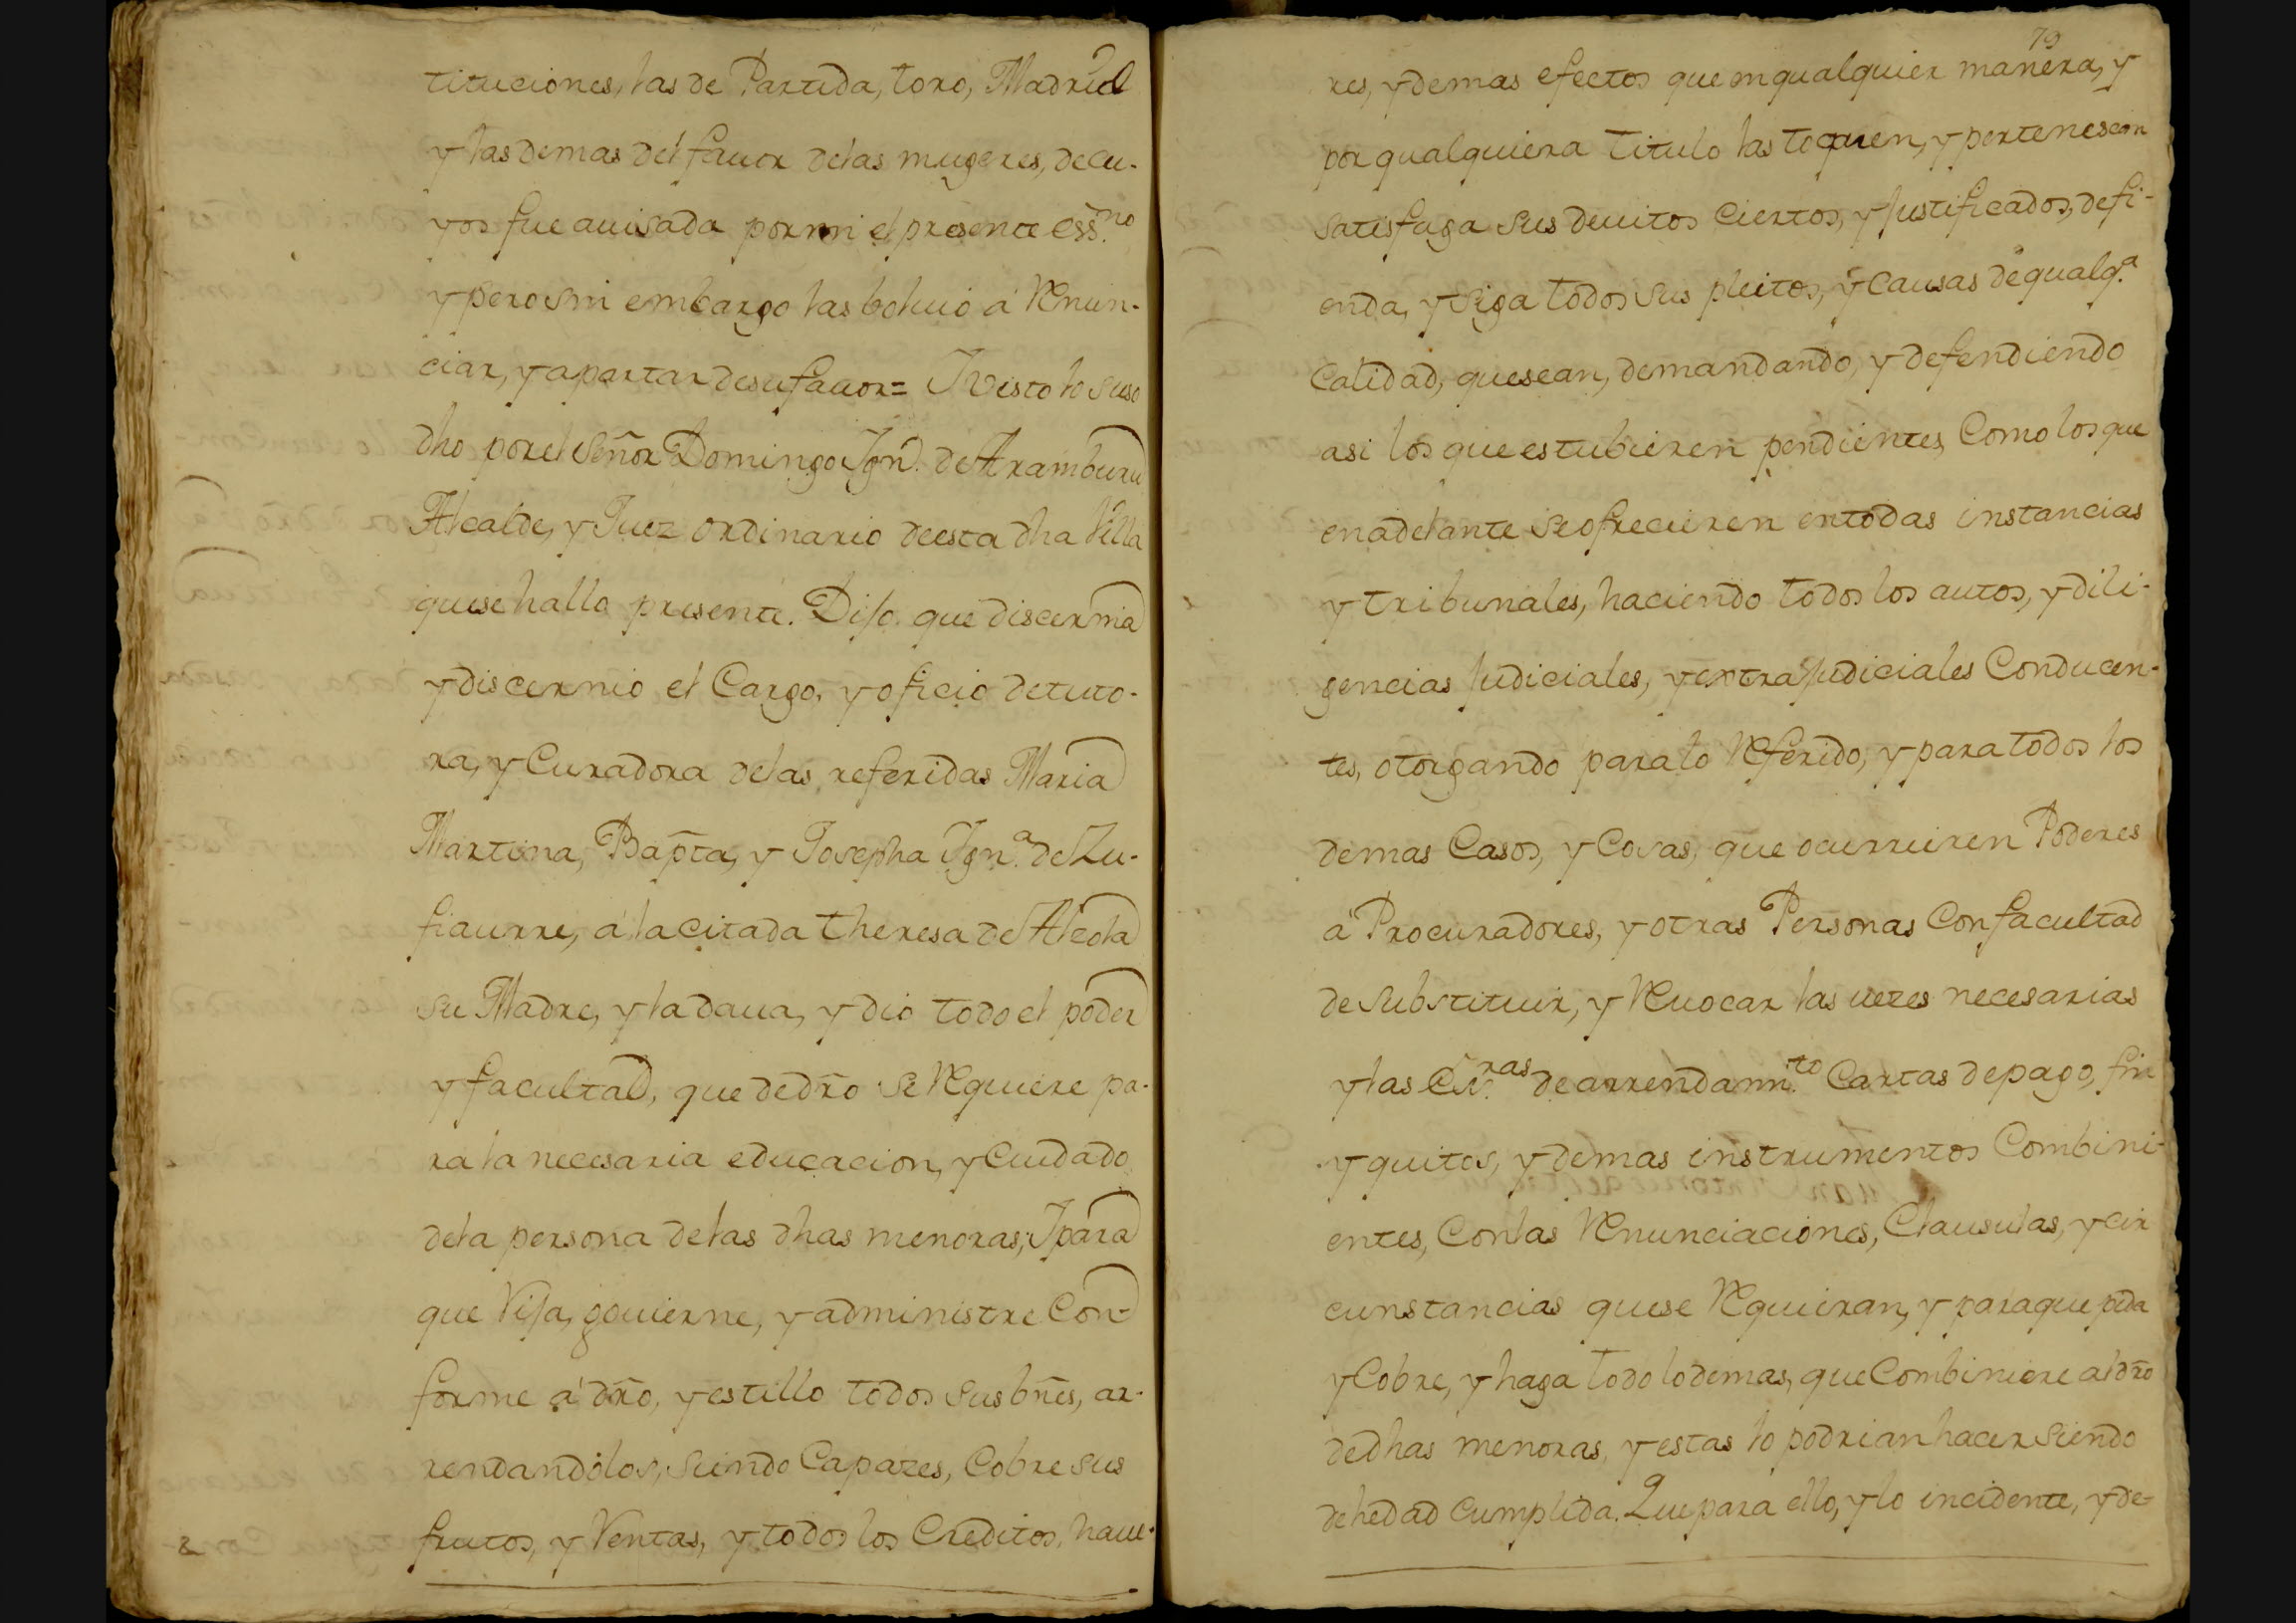 tituciones, las de Partida, toro, Madrid
y las demas del fauor delas mugeres, decu-
yos fue auisada por mi el presente ess.no
y pero sin embargo las boluio á Renun-
ciar, y apartar desu fauor= Y visto lo suso
dho por el Señor Domingo Ign.o de Aramburu
Alcalde, y Juez ordinario deesta dha Villa
quese hallo presente. Dijo que discernia
y discernio el Cargo, y oficio detuto-
ra, y Curadora delas referidas Maria
Martina, Bapta, y Josepha Ign.a de Zu-
fiaurre, á la citada theresa de Alcola
su Madre, y la daua, y dio todo el poder
y facultad, que dedrõ se Requiere pa-
ra la necesaria educacion, y Cuidado
dela persona delas dhas menoras; Y para
que Rija, gouierne, y administre Con-
forme á drõ, y estillo todos sus bñes, ar-
rendandolos, siendo Capazes, Cobre sus
frutos, y Rentas, y todos los Creditos, haue-
79
res, y demas efectos que en qualquier manera, y
por qualquiera titulo las toquen, y pertenescan
satisfaga sus deuitos Ciertos, y Justificados, defi-
enda, y siga todos sus pleitos, y Causas de qualq.a
Calidad, quesean, demandando, y defendiendo
asi los que estubieren pendientes, Como los que
enadelante se ofrecieren entodas instancias
y tribunales, haciendo todos los autos, y dili-
gencias Judiciales, y extraJudiciales Conducen-
tes, otorgando para lo Referido, y para todos los
demas Casos, y Cosas, que ocurrieren Poderes
á Procuradores, y otras Personas Con facultad
de Substituir, y Reuocar las uezes necesarias
y las Esc.ras de arrendam.to Cartas depago, fin
y quitos, y demas instrumentos Combini-
entes, Con las Renunciaciones, Clausulas, y cir
cunstancias quese Requieran, y paraque pida
y Cobre, y haga todo lodemas, que Combiniere al drõ
dedhas menoras, y estas lo podrian hacer siendo
de hedad Cumplida. Que para ello, y lo incidente, y de-